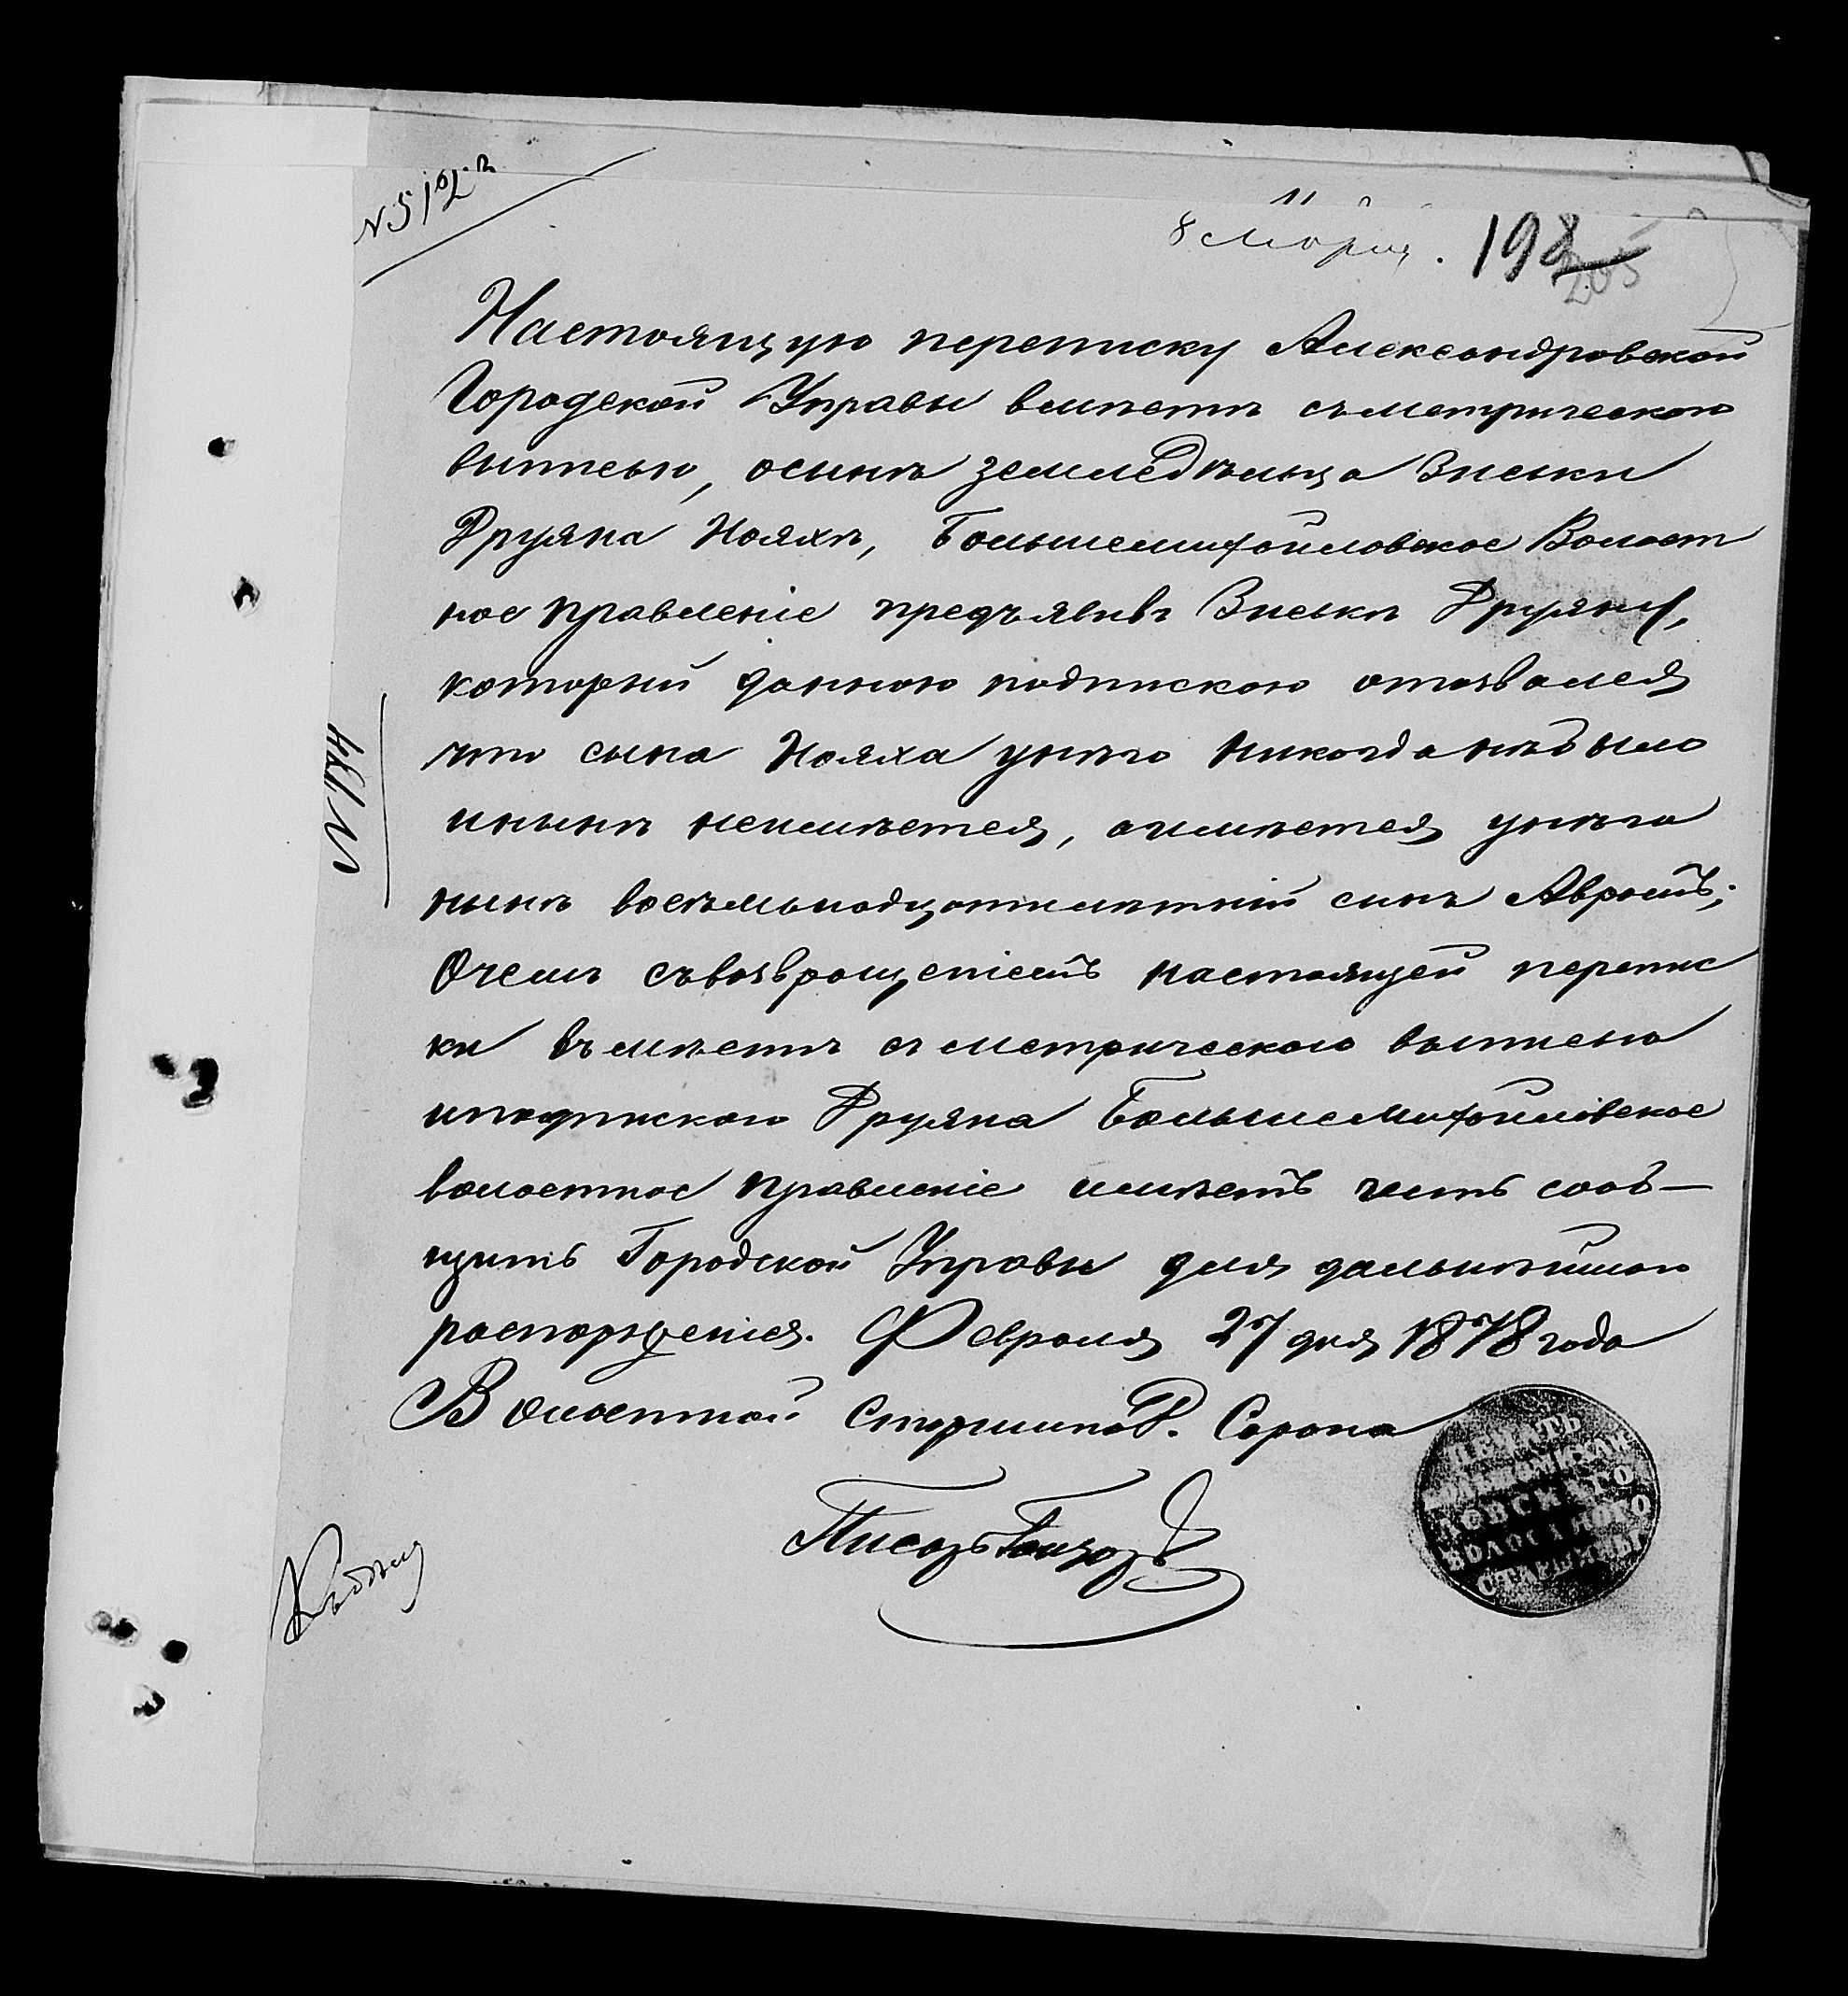 8 Марта. 198
205
Настоящую переписку Александровской
Городской Управы вмѣстѣ съ метрическою
выписью, о сынѣ земледѣльца Зиськи
Друяна Нояхѣ, Большемихайловское Волост
ное правленіе предъявивъ Зиськѣ Друяну,
который данною подпискою отозвался
что сына Нояха у нѣго никогда нѣбыло
и нынѣ неимѣется, а имѣется у нѣго
нынѣ восѣмьнадцатилѣтній сынъ Авромъ;
О чемъ съ возвращеніемъ настоящей перепис
ки въмѣстѣ съ метрическою выписью
и подпискою Друяна Большемихайловское
волостное правленіе имѣетъ честь сооб—
щить Городской Управы для дальнѣйшаго
распоряженія. Февраля 27 дня 1878 года
Волостной Старшина. Сорока
Писарь
№ 794
ПЕЧАТЬ
БОЛЬШЕМИХАЙ
ЛОВСКАГО
ВОЛОСТНОГО
СТАРШИНЫ